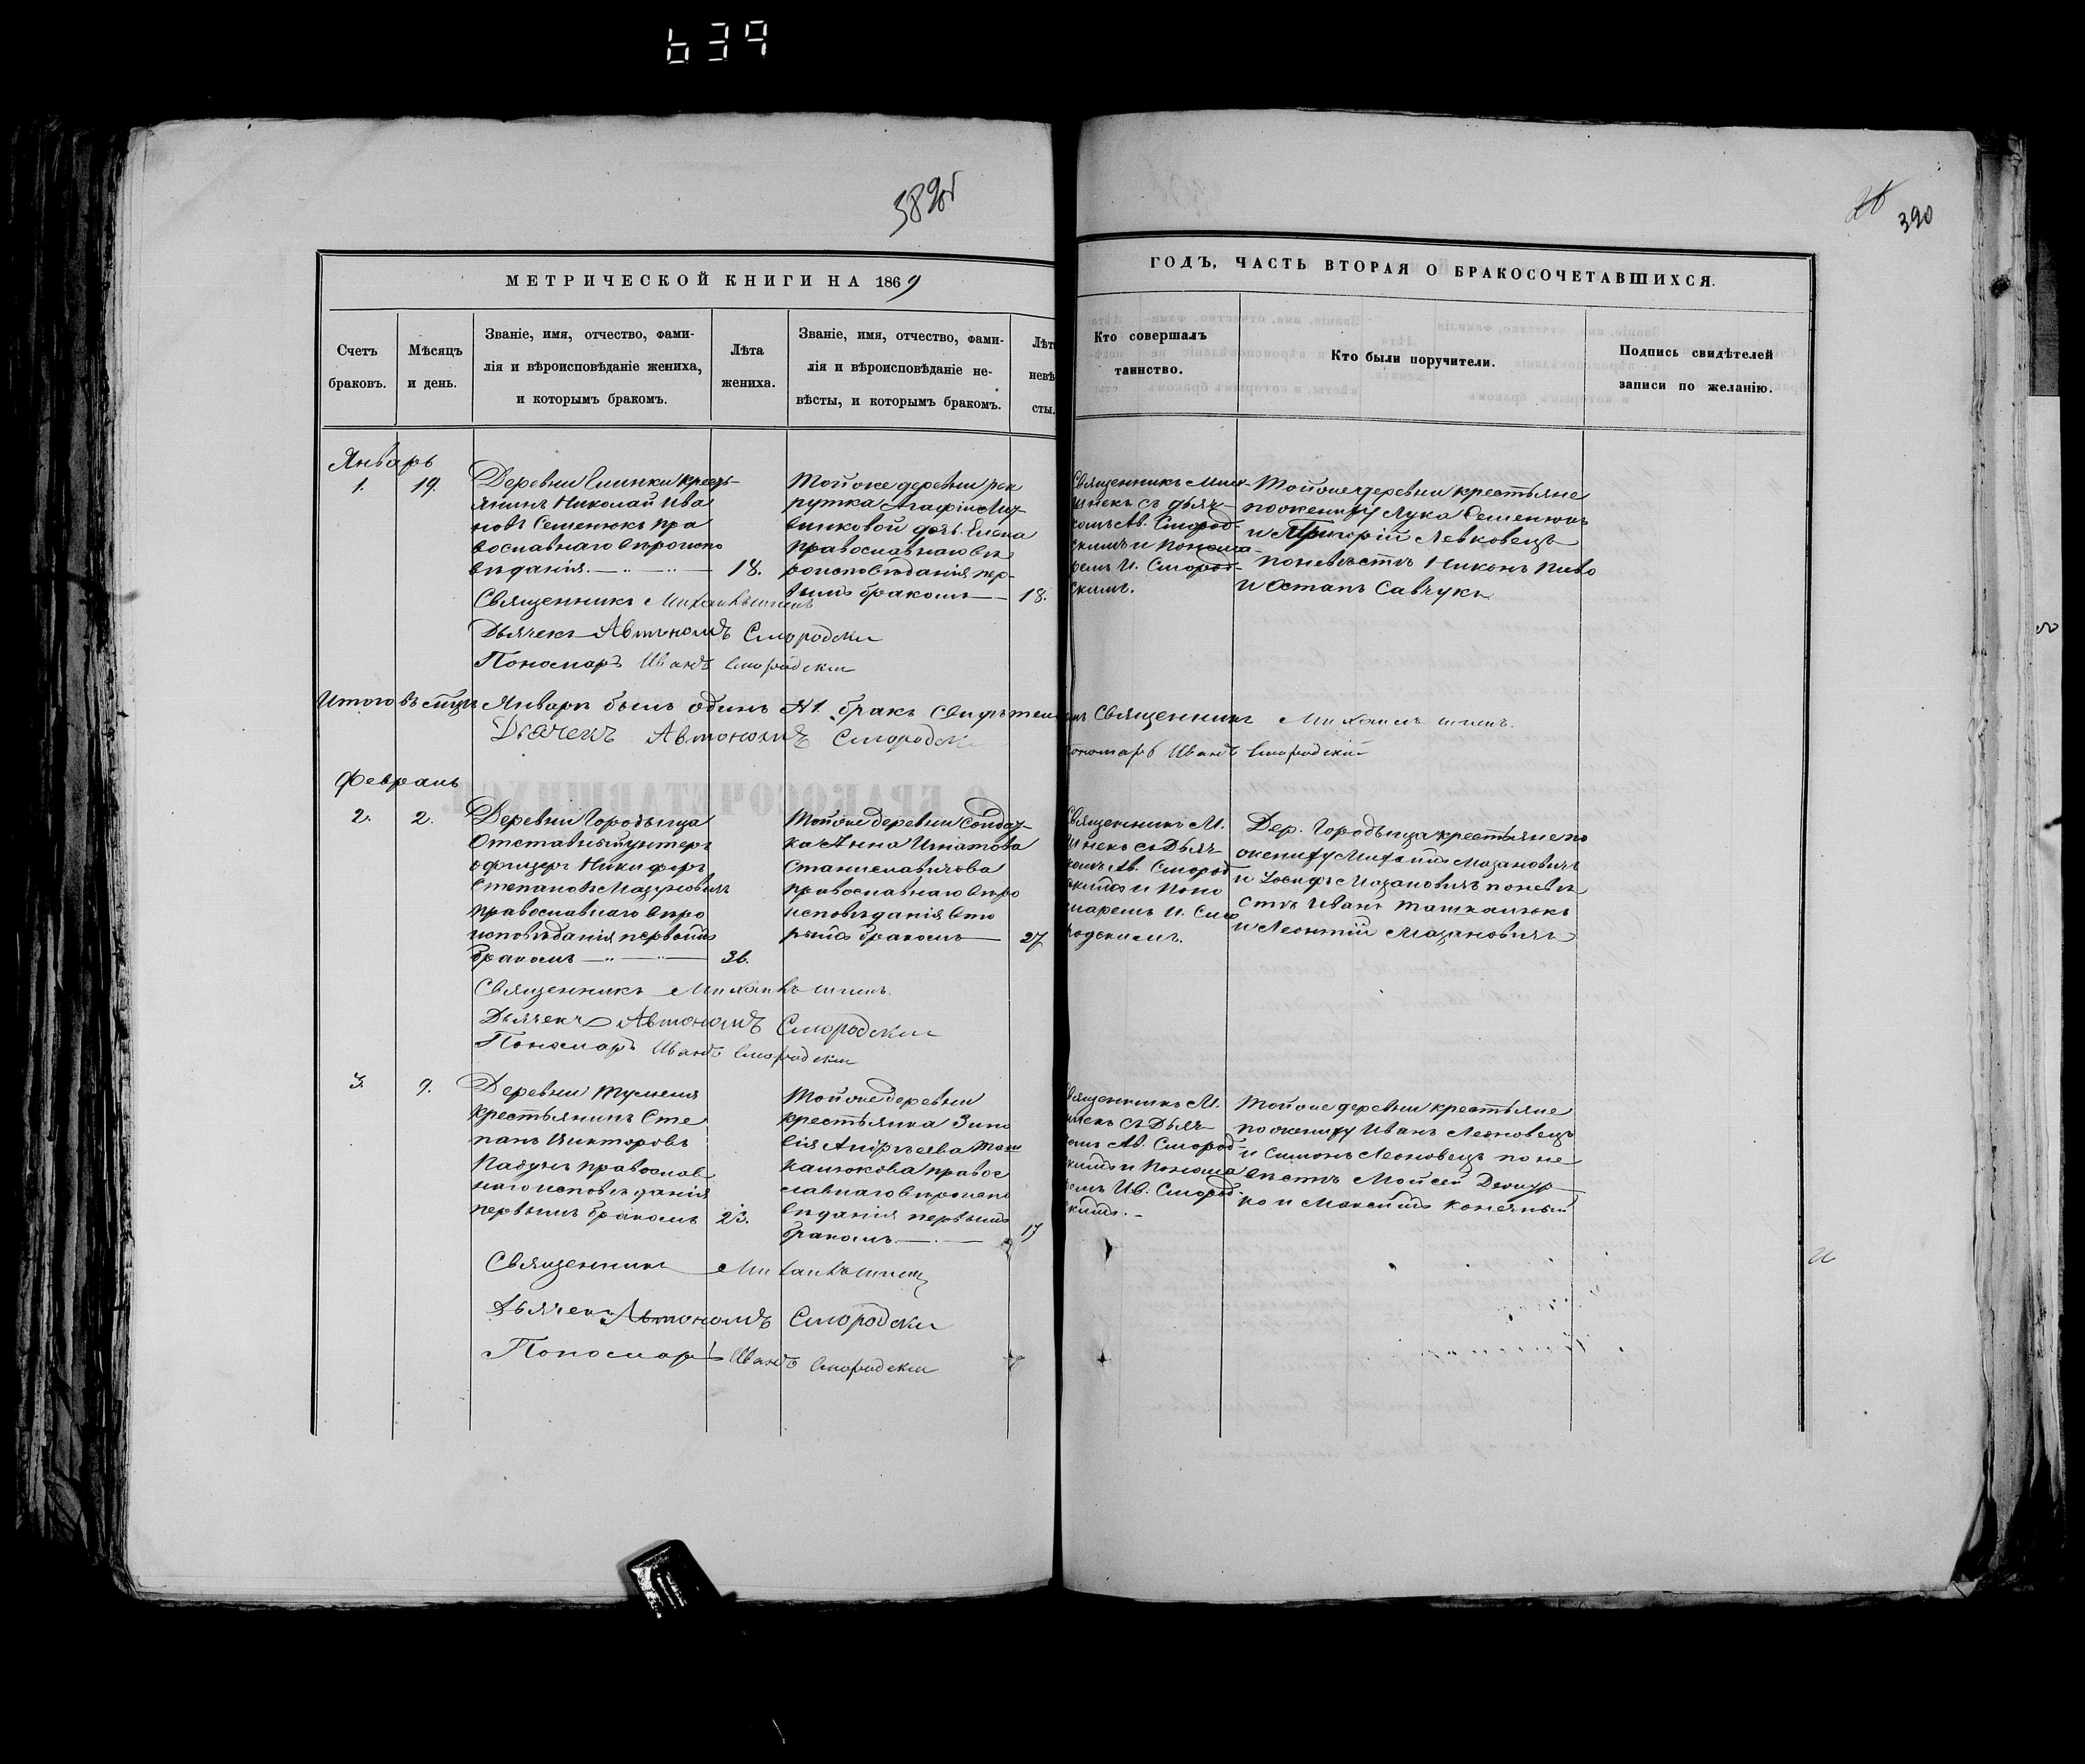 639
389об
26 390
МЕТРИЧЕСКОЙ КНИГИ НА 1869
ГОДЪ, ЧАСТЬ ВТОРАЯ О БРАКОСОЧЕТАВШИХСЯ.
Счетъ
браковъ.
Мѣсяцъ
и день.
Званіе, имя, отчество, фами-
лія и вѣроисповѣданіе жениха,
и которымъ бракомъ.
Лѣта
жениха.
Званіе, имя, отчество, фами-
лія и вѣроисповѣданіе не-
вѣсты, и которымъ бракомъ.
Лѣт
невѣ
сты.
Кто совершалъ
таинство.
Кто были поручители.
Подпись свидѣтелей
записи по желанію.
Январь
1.
19.
Деревни крестъ-
янинъ Николай Ива
новъ Семенюкъ пра
вославнаго вѣроиспо
вѣданія.
18.
Тойже деревни рек
рутка Агафіи
дочь Елена
православнаго вѣ
роисповѣданія пер-
вымъ бракомъ
18.
Священникъ
съ дьяч-
комъ Ав. Смород-
скимъ и понома-
ремъ И. Смород-
скимъ.
Тойже деревни крестьяне
по жениху Лука Семенюкъ
и Григорій Левковецъ
по невѣстѣ Никонъ
и Остапъ Савчукъ
Священникъ Михаилъ
Дьячекъ Автономъ Смородски
Пономаръ Иванъ Смородски
Итого въ мцѣ Январѣ былъ одинъ №1. бракъ свидѣтел
Священникъ Михаилъ
Дьячекъ Автономъ Смородски
ономарь Иванъ Смородскій
Февраль
2.
2.
Деревни Городыща
Отставный унтеръ
офицеръ Никифоръ
Степановъ
православнаго вѣро
исповѣданія первымъ
бракомъ
36.
Тойже деревни солдат-
ка Анна Игнатова
Станиславичова
православнаго вѣро
исповѣданія вто
рымъ бракомъ
27
Священникъ М.
съ Дьяч-
комъ Ав. Смород
скимъ и Поно
маремъ И. Смо
родскимъ.
Дер. Городыща крестьяне по
жениху Мазановичъ
и Іосифъ Мазановичъ по невѣ
стѣ Иванъ Ташкалюкъ
и Леонтій Мазановичъ
Священникъ Михаилъ
Дьячекъ Автономъ Смородски
Пономаръ Иванъ Смородски
3.
9.
Деревни
крестьянинъ Сте
панъ Викторовъ
православ
наго исповѣданія
первымъ бракомъ
23.
Тойже деревни
крестьянка Зино
вія Андреева Таш
калюкова правос
лавнаго вѣроиспо
вѣданія первымъ
бракомъ
17
Священникъ М.
съ Дьяч-
комъ Ав. Смород
скимъ и Понома
ремъ Ив. Смород-
скимъ.
Тойже деревни крестьяне
по жениху Иванъ Леоновецъ
и Симонъ Леоновецъ по не
вѣстѣ Мойсей
и Максимъ
Священникъ Михаилъ
Дьячекъ Автономъ Смородски
Пономарь Иванъ Смородски